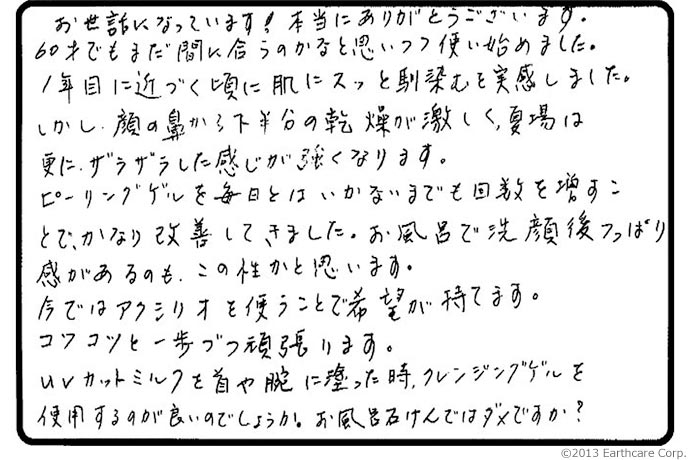 お世話になっています!本当にありがとうございます。
60才でもまだ間に合うのかなと思いつつ使い始めました。
1年目に近づく頃に肌にスッと馴染むを実感しました。
しかし、顔の鼻から下半分の乾燥が激しく、夏場は
更に、ザラザラした感じが強くなります。
ピーリングゲルを毎日とはいかないまでも回数を増すこ
とで、かなり改善してきました。お風呂で洗顔後つっぱり
感があるのも、この性かと思います。
今ではアクシリオを使うことで希望が持てます。
コツコツと一歩づつ頑張ります。
uvカットミルクを首や腕に塗った時、クレンジングゲルを
使用するのが良いのでしょうか。お風呂石けんではダメですか?
©2013 Earthcare Corp.